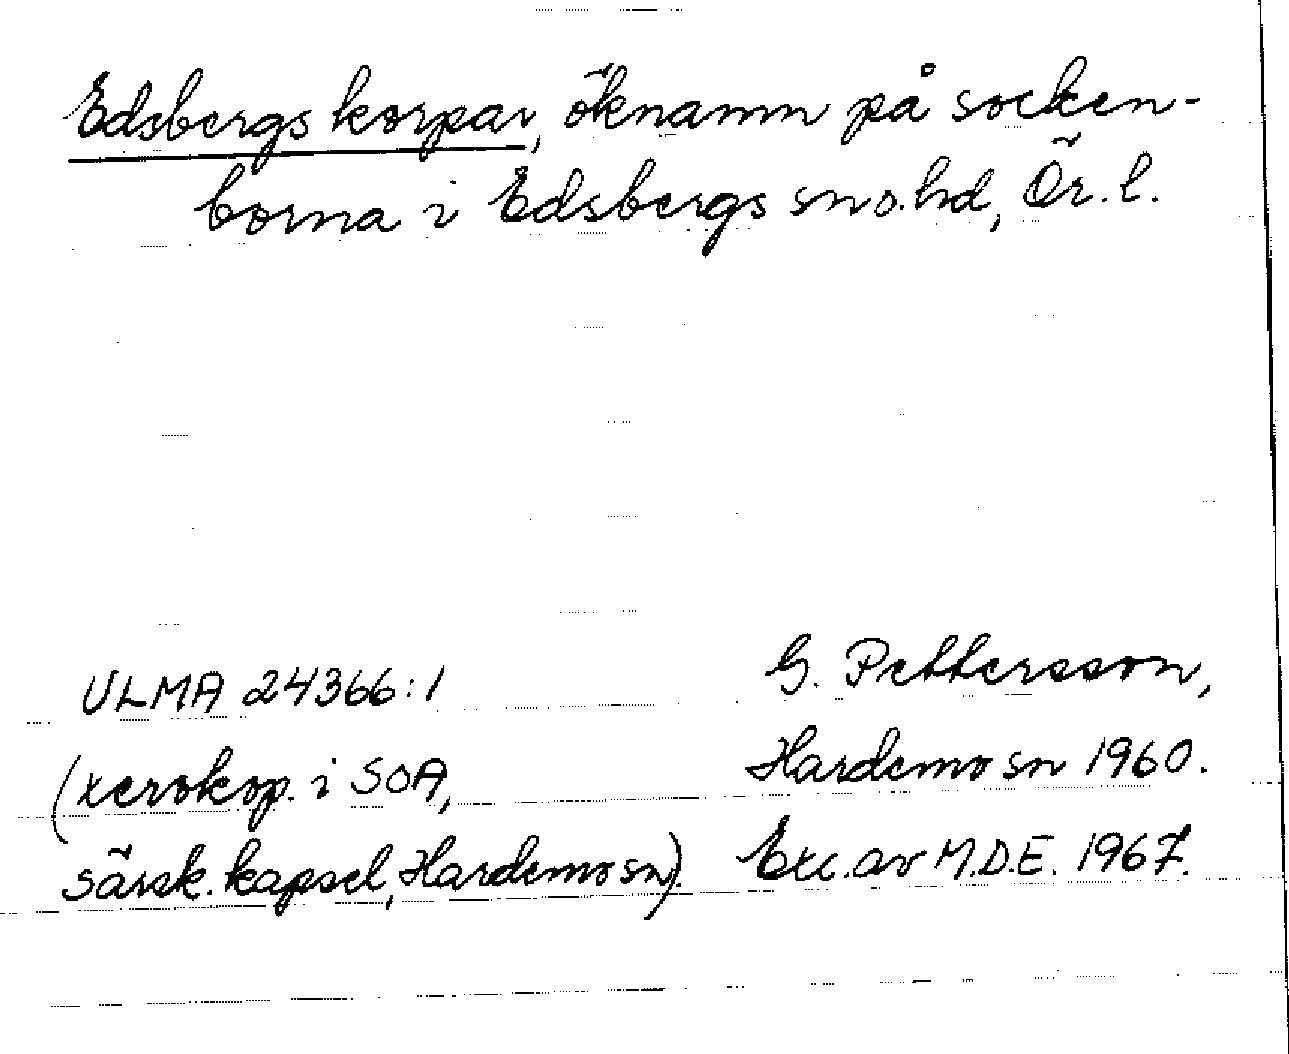 Edsbergs korpar, öknamn på socken-
borna i Edsbergs sn o. hd, Ör. l.
ULMA 24366:1
(xerokop. i SOA,
särsk. kapsel, Hardemo sn).
G. Pettersson,
Hardemo sn 1960.
Exc. av M.D.E. 1967.